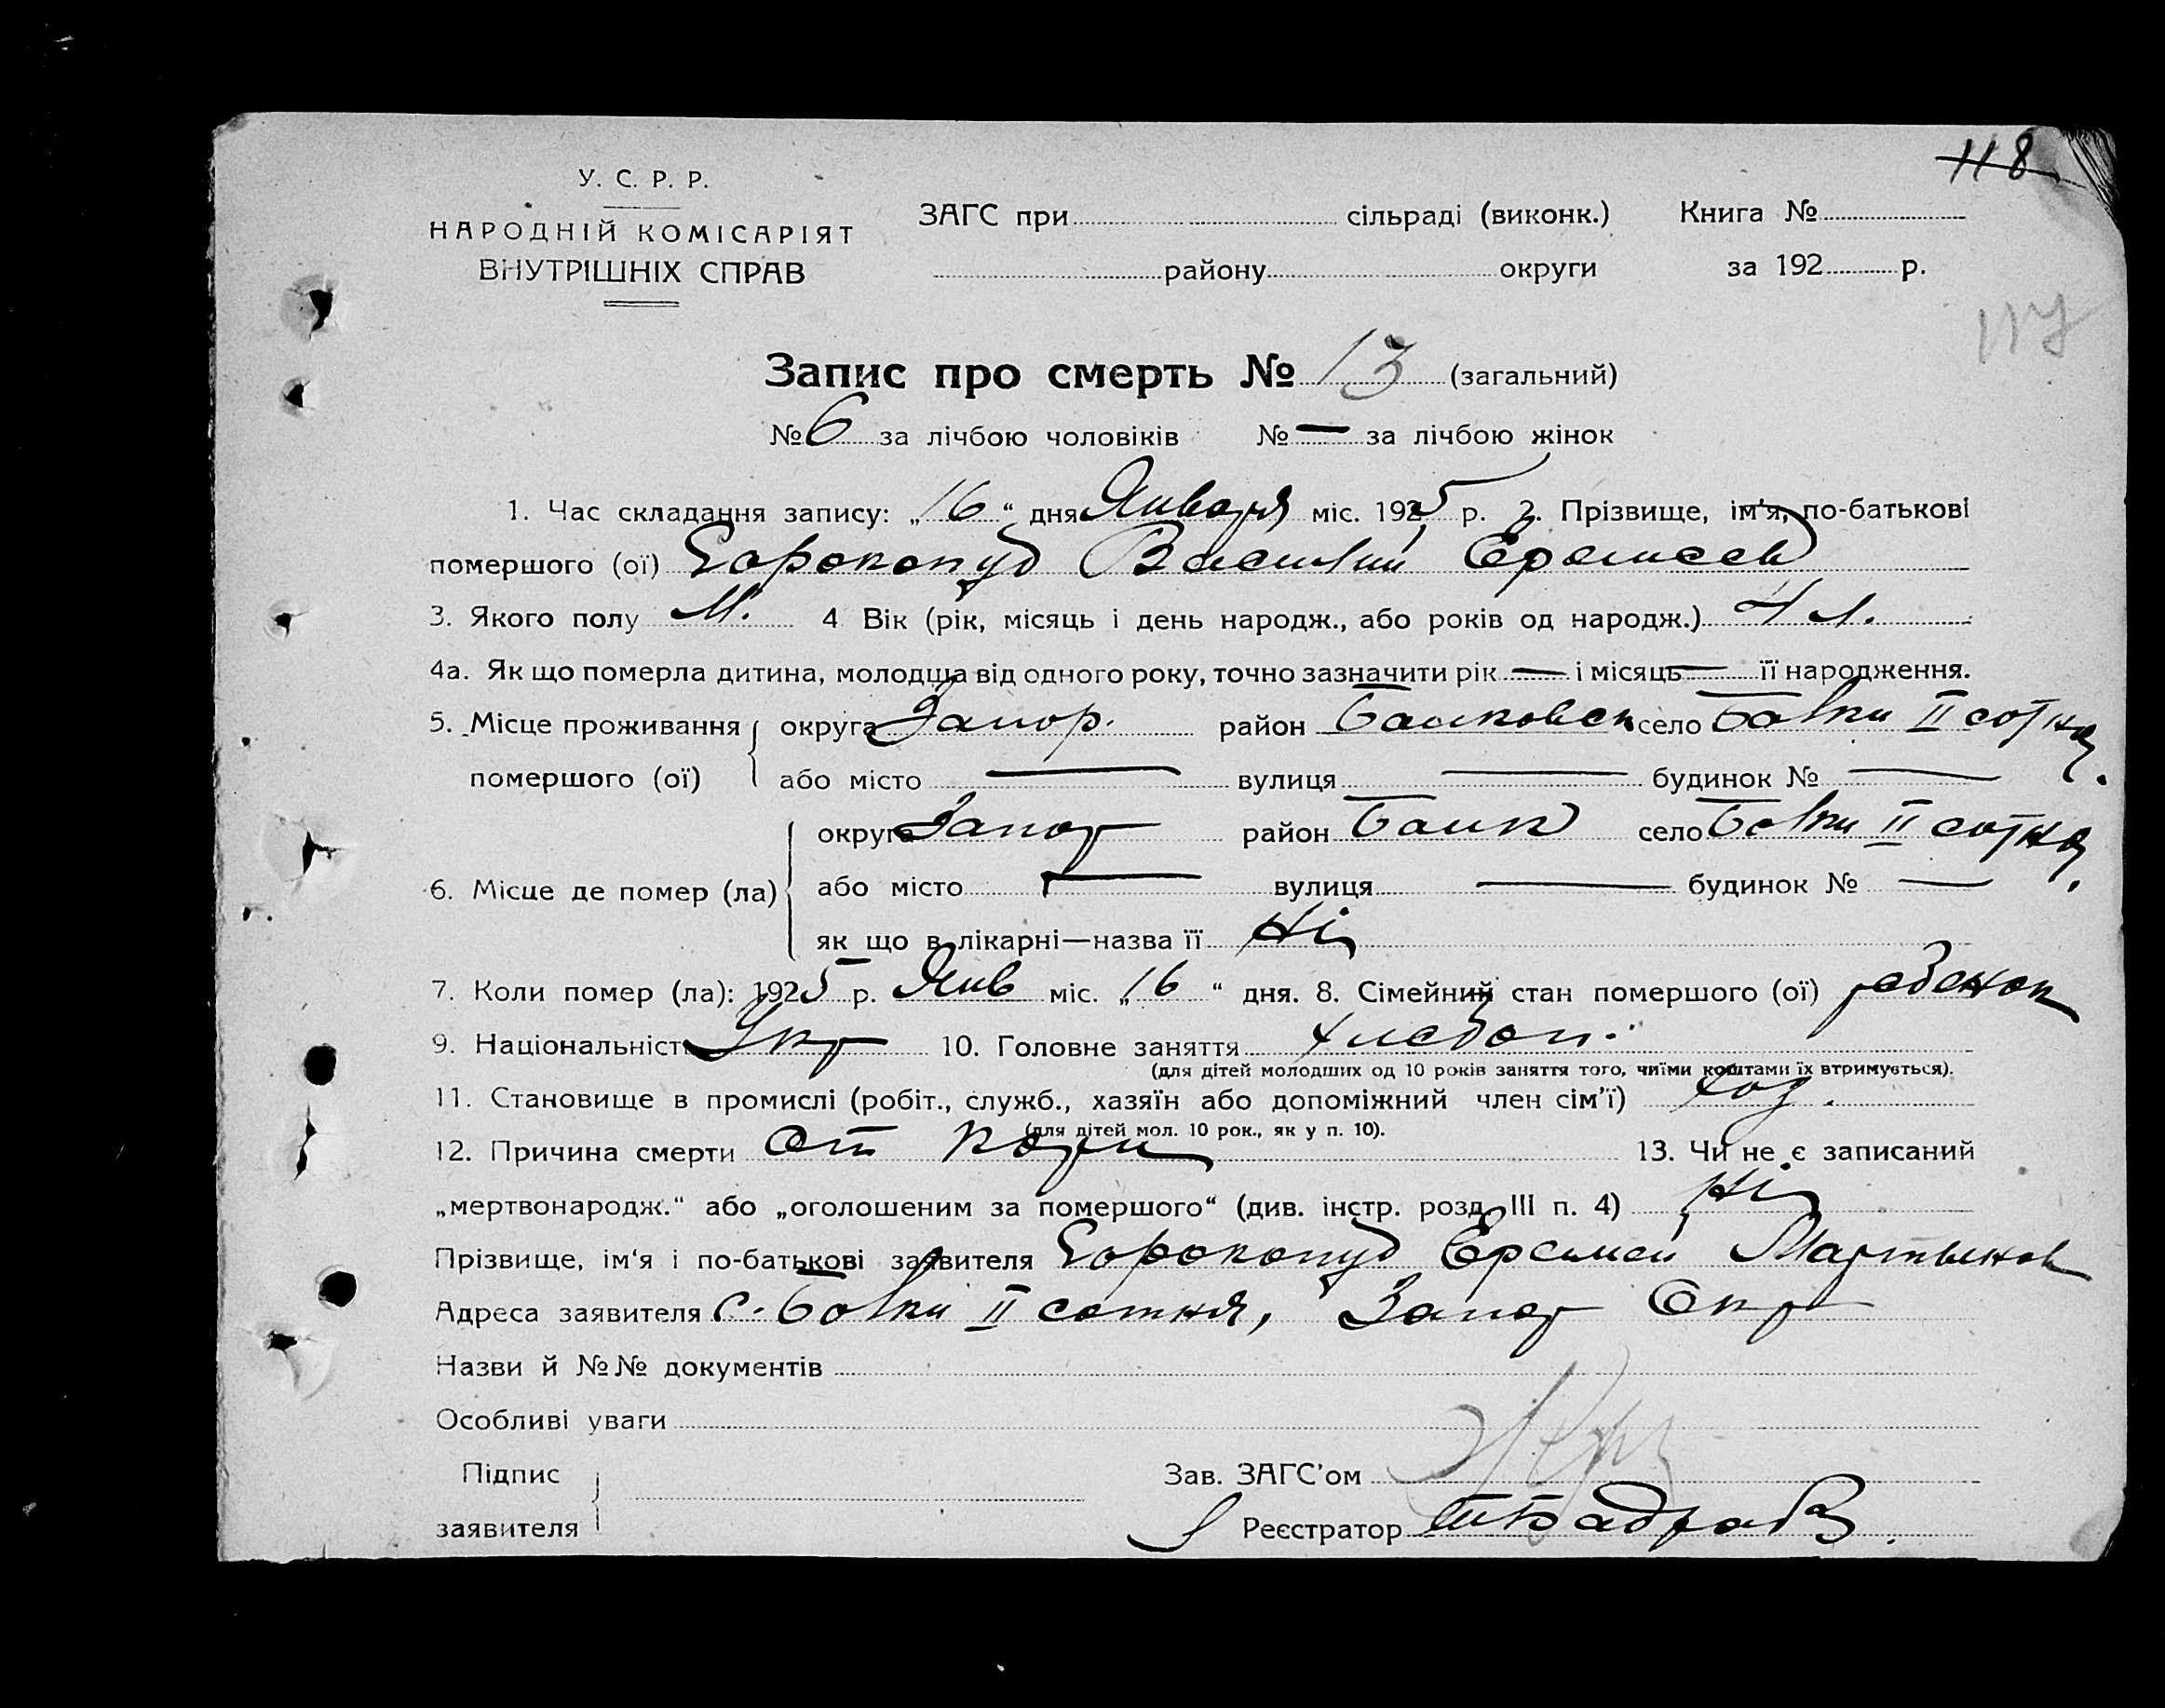 118
У. С. Р. Р.
НАРОДНІЙ КОМІСАРІЯТ
ВНУТРІШНІХ СПРАВ
ЗАГС при сільраді (виконк.) Книга №
району округи за 192 р.
117
Запис про смерть № 13 (загальний)
№ 6 за лічбою чоловіків № — за лічбою жінок
1. Час складання запису: „16“ дня Января міс. 1925 р. 2. Прізвище, ім'я, по-батькові
помершого (ої) Сорокопуд Василий Еремеев
3. Якого полу М. 4 Вік (рік, місяць і день народж., або років од народж.) 4 л.
4а. Як що померла дитина, молодща від одного року, точно зазначити рік — і місяць — її народження.
5. Місце проживання помершого (ої) округа Запор. район Балковск село Балки II сотня.
або місто — вулиця — будинок № —
6. Місце де помер (ла) округа Запор район Балк село Балки II сотня.
або місто — вулиця — будинок № —
як що в лікарні—назва її Ні
7. Коли помер (ла): 1925 р. Янв міс. „16“ дня. 8. Сімейний стан помершого (ої) ребенок
9. Національність Укр 10. Головне заняття хлебоп.
(для дітей молодших од 10 років заняття того, чиїми коштами їх втримується).
11. Становище в промислі (робіт., служб., хазяїн або допоміжний член сім'ї) хоз.
(для дітей мол. 10 рок., як у п. 10).
12. Причина смерти От кори 13. Чи не є записаний
„мертвонародж.“ або „оголошеним за помершого“ (див. інстр. розд. III п. 4) Ні
Прізвище, ім'я і по-батькові заявителя Сорокопуд Еремей Мартынов
Адреса заявителя С. Балки II сотня, Запор Окр
Назви й №№ документів
Особливі уваги
Підпис заявителя
Зав. ЗАГС'ом
Реєстратор